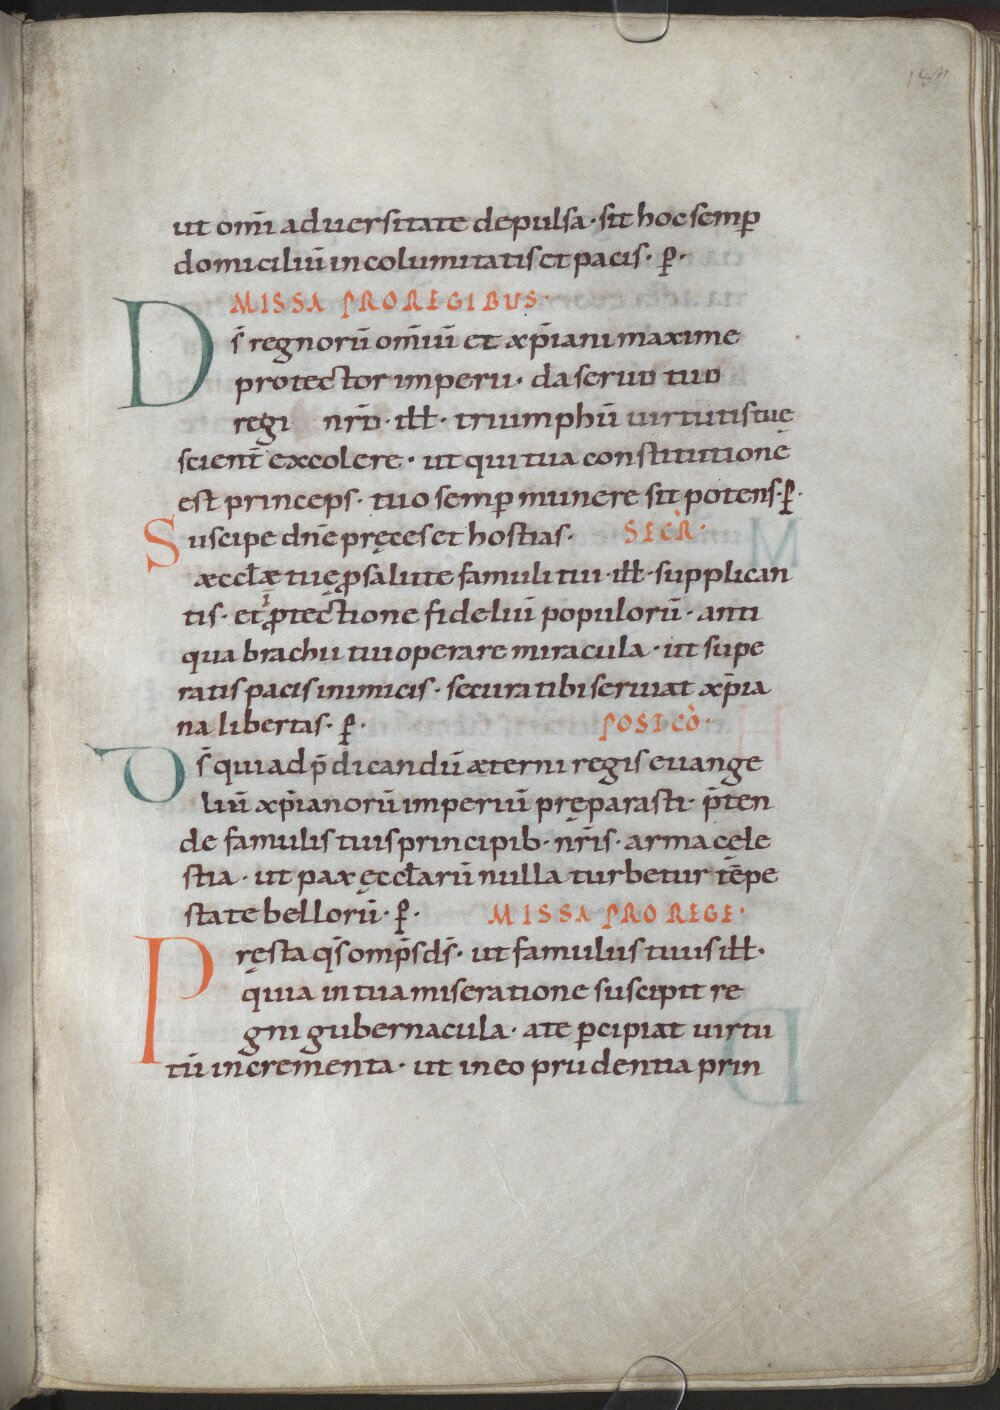 189
ut om̄i aduersitate depulsa · sit hoc semꝑ
domiciliū incolumitatis et pacis · ꝑ ·
MISSA PRO REGIBUS ·
Ds̄ regnorū om̄iū et xp̄iani maxime
protector imperii · da seruo tuo
regi nr̄o · iłł · triumphū uirtutis tuę
scient̄ excolere · ut qui tua constitutione
est princeps · tuo semꝑ munere sit potens · ꝑ ·
Suscipe dn̄e pręces et hostias · SECR̄ ·
æccłæ tuę ꝓ salute famuli tui · iłł · supplican
tis · et ꝓtectione fideliū populorū · anti
qua brachii tui operare miracula · ut supe
ratis pacis inimicis · secura tibi seruiat xp̄ia
na libertas · ꝑ · POST CŌ ·
Ds̄ qui ad p̄dicandū æterni regis euange
liū xp̄ianorū imperiū pręparasti · p̄ten
de famulis tuis principib · nr̄is · arma cęle
stia · ut pax ęccłarū nulla turbetur tēpe
state bellorū · ꝑ · MISSA PRO REGE ·
Pręsta qs̄ omp̄s ds̄ · ut famulus tuus iłł ·
quia in tua miseratione suscipit re
gni gubernacula · a te ꝑcipiat uirtu
tū incrementa · ut in eo prudentia prin